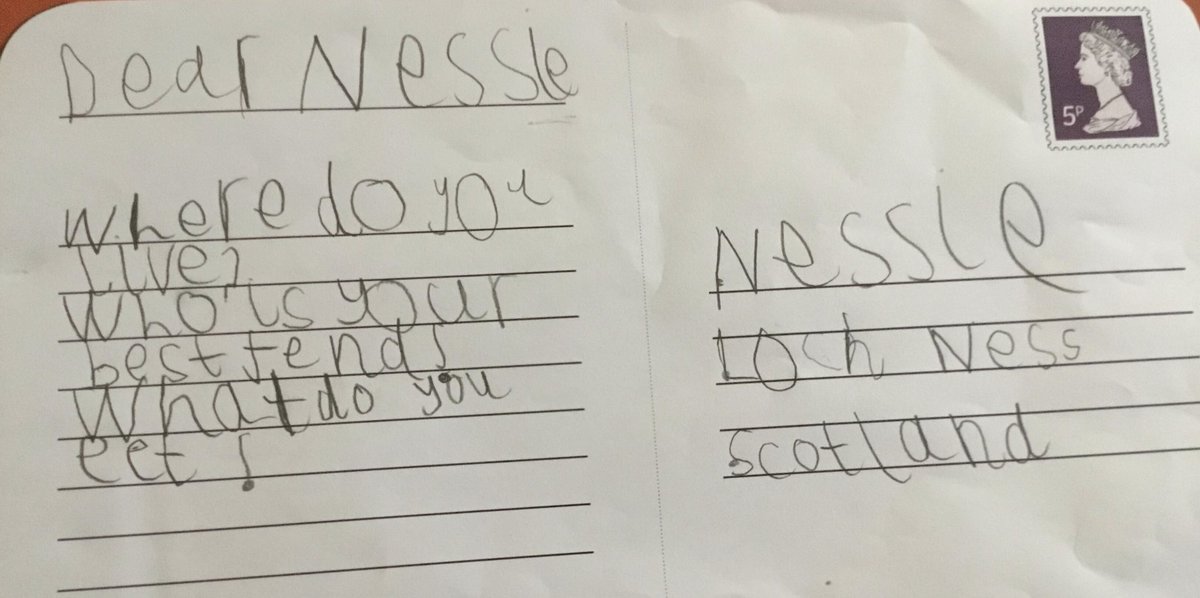 Dear Nessie
where do you
live?
Who is your
best fend?
What do you
eet?
5P
Nessie
Loch Ness
Scotland